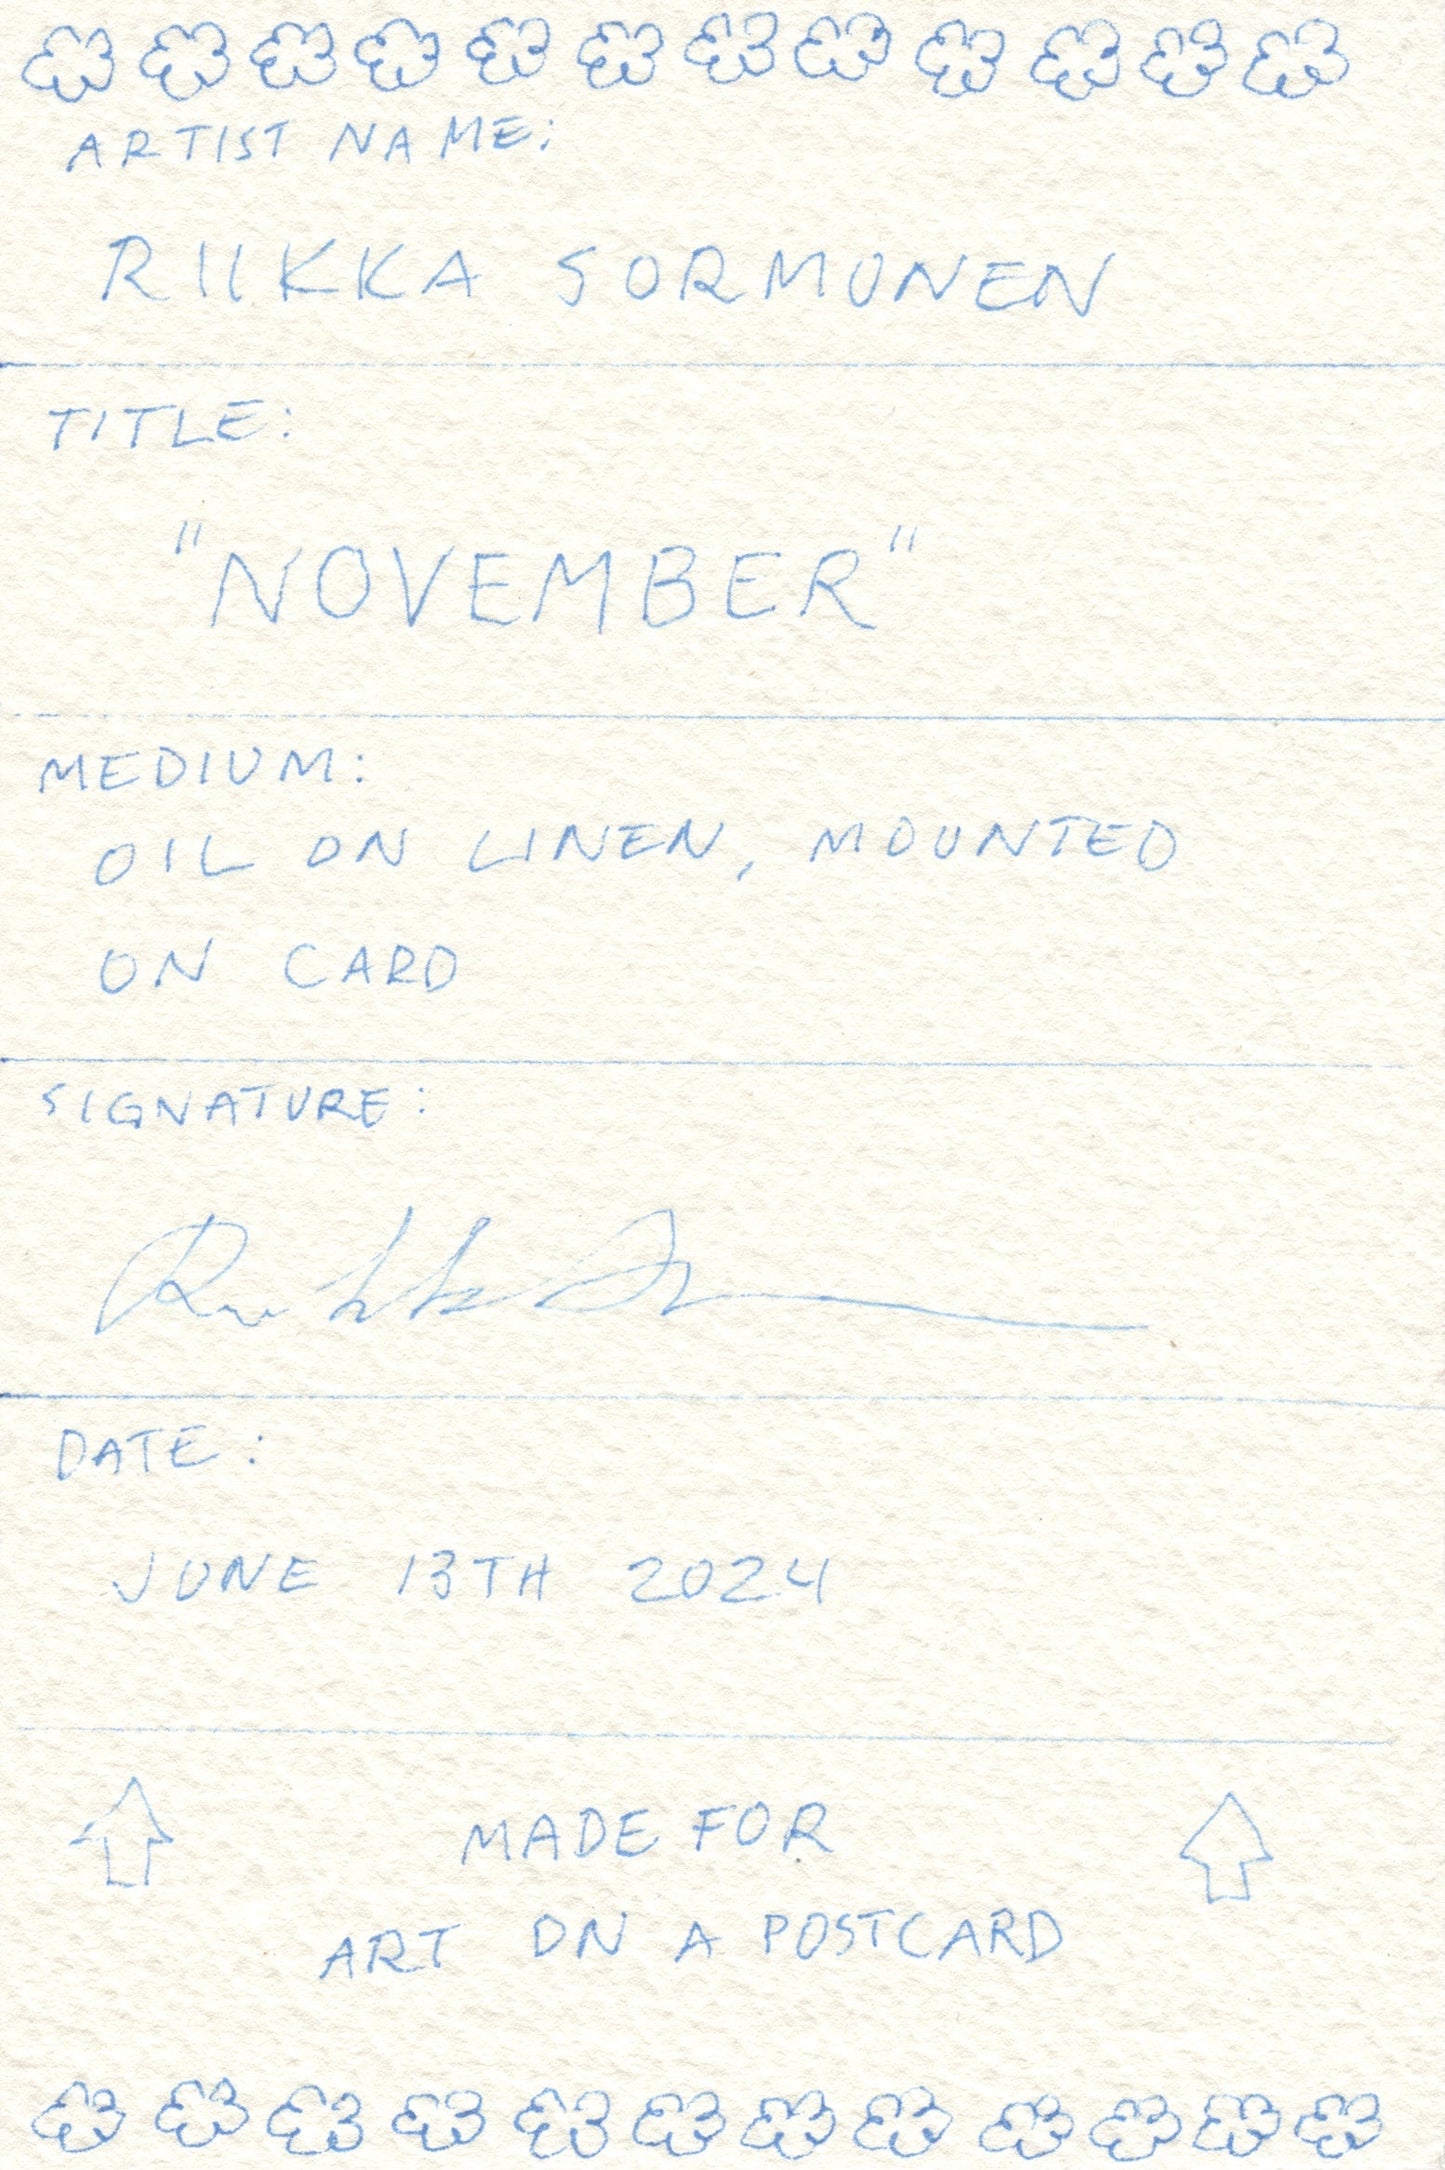 ARTIST NAME:
RIIKKA SORMUNEN
TITLE:
"NOVEMBER"
MEDIUM:
OIL ON LINEN, MOUNTED
ON CARD
SIGNATURE:
DATE:
JUNE 13TH 2024
MADE FOR
ART ON A POSTCARD